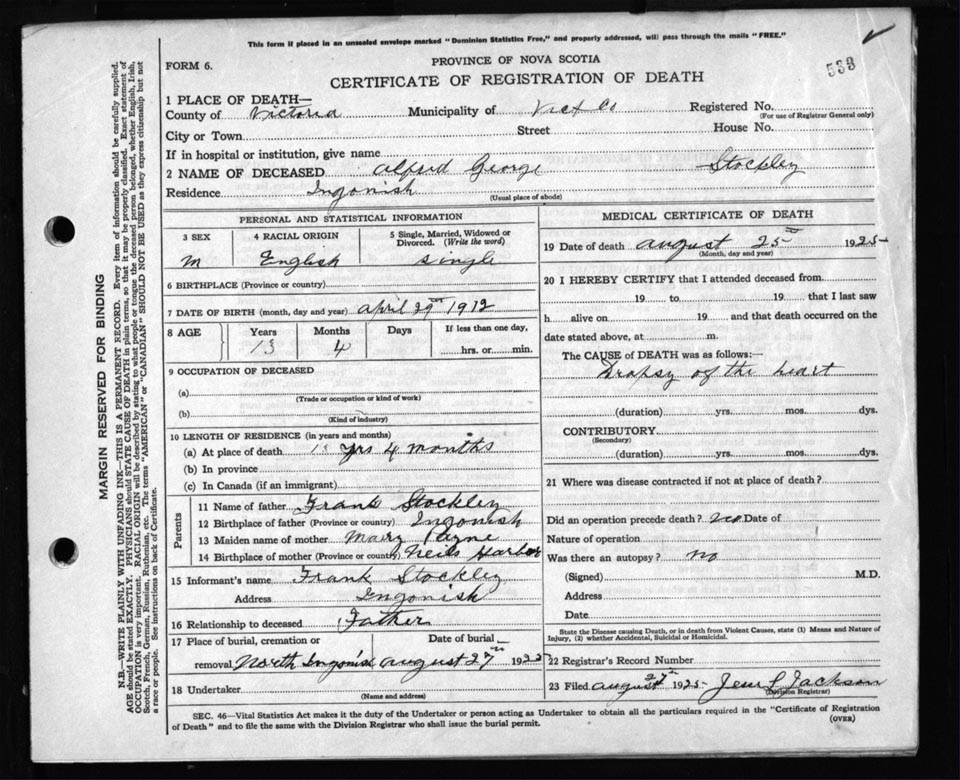 This form if placed in an unsealed envelope marked "Dominion Statistics Free," and properly addressed, will pass through the mails "FREE."
FORM 6.
PROVINCE OF NOVA SCOTIA
533
CERTIFICATE OF REGISTRATION OF DEATH
1 PLACE OF DEATH—
County of Victoria Municipality of Vict Co Registered No.
(For use of Registrar General only)
City or Town Street House No.
If in hospital or institution, give name
2 NAME OF DECEASED Alfred George Stockley
Residence Ingonish
(Usual place of abode)
PERSONAL AND STATISTICAL INFORMATION
3 SEX 4 RACIAL ORIGIN 5 Single, Married, Widowed or Divorced. (Write the word)
M English Single
6 BIRTHPLACE (Province or country)
7 DATE OF BIRTH (month, day and year) April 29th 1912
8 AGE Years Months Days If less than one day,
13 4 hrs. or min.
9 OCCUPATION OF DECEASED
(a)
(Trade or occupation or kind of work)
(b)
(Kind of industry)
10 LENGTH OF RESIDENCE (in years and months)
(a) At place of death 13 yrs 4 months
(b) In province
(c) In Canada (if an immigrant)
Parents
11 Name of father Frank Stockley
12 Birthplace of father (Province or country) Ingonish
13 Maiden name of mother Mary Payne
14 Birthplace of mother (Province or country) Neils Harbor
15 Informant's name Frank Stockley
Address Ingonish
16 Relationship to deceased Father
17 Place of burial, cremation or Date of burial
removal North Ingonish August 27th 1925
18 Undertaker
(Name and address)
MEDICAL CERTIFICATE OF DEATH
19 Date of death August 25th 1925
(Month, day and year)
20 I HEREBY CERTIFY that I attended deceased from
19 to 19 that I last saw
h alive on 19 and that death occurred on the
date stated above, at m.
The CAUSE of DEATH was as follows:—
Dropsy of the heart
(duration) yrs. mos. dys.
CONTRIBUTORY
(Secondary)
(duration) yrs. mos. dys.
21 Where was disease contracted if not at place of death?
Did an operation precede death? No Date of
Nature of operation
Was there an autopsy? No
(Signed) M.D.
Address
Date
State the Disease causing Death, or in death from Violent Causes, state (1) Means and Nature of
Injury, (2) whether Accidental, Suicidal or Homicidal.
22 Registrar's Record Number
23 Filed August 27th 1925 Jackson
(Division Registrar)
SEC. 46—Vital Statistics Act makes it the duty of the Undertaker or person acting as Undertaker to obtain all the particulars required in the "Certificate of Registration
of Death" and to file the same with the Division Registrar who shall issue the burial permit.
(OVER)
MARGIN RESERVED FOR BINDING
N.B.—WRITE PLAINLY WITH UNFADING INK—THIS IS A PERMANENT RECORD. Every item of information should be carefully supplied.
AGE should be stated EXACTLY. PHYSICIANS should STATE CAUSE OF DEATH in plain terms, so that it may be properly classified. Exact statement of
OCCUPATION is very important. RACIAL ORIGIN will be described by stating to what people or tongue the deceased person belonged, whether English, Irish,
Scotch, French, German, Russian, Ruthenian, etc. The terms "AMERICAN" or "CANADIAN" SHOULD NOT BE USED as they express citizenship but not
a race or people. See instructions on back of Certificate.